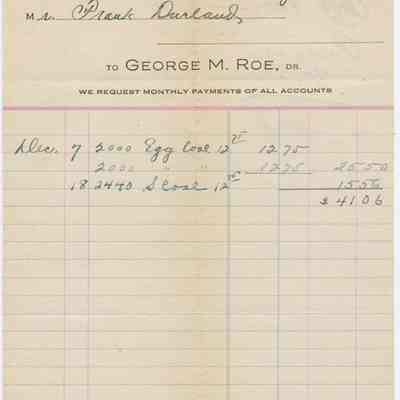 Mr. Frank Durland,
TO GEORGE M. ROE, DR.
WE REQUEST MONTHLY PAYMENTS OF ALL ACCOUNTS
Dec. 7 2000 Egg Coal 12 75 12 75
2000 " " 12 75 25 50
18 2440 S Coal 12 75 15 56
$ 41 06